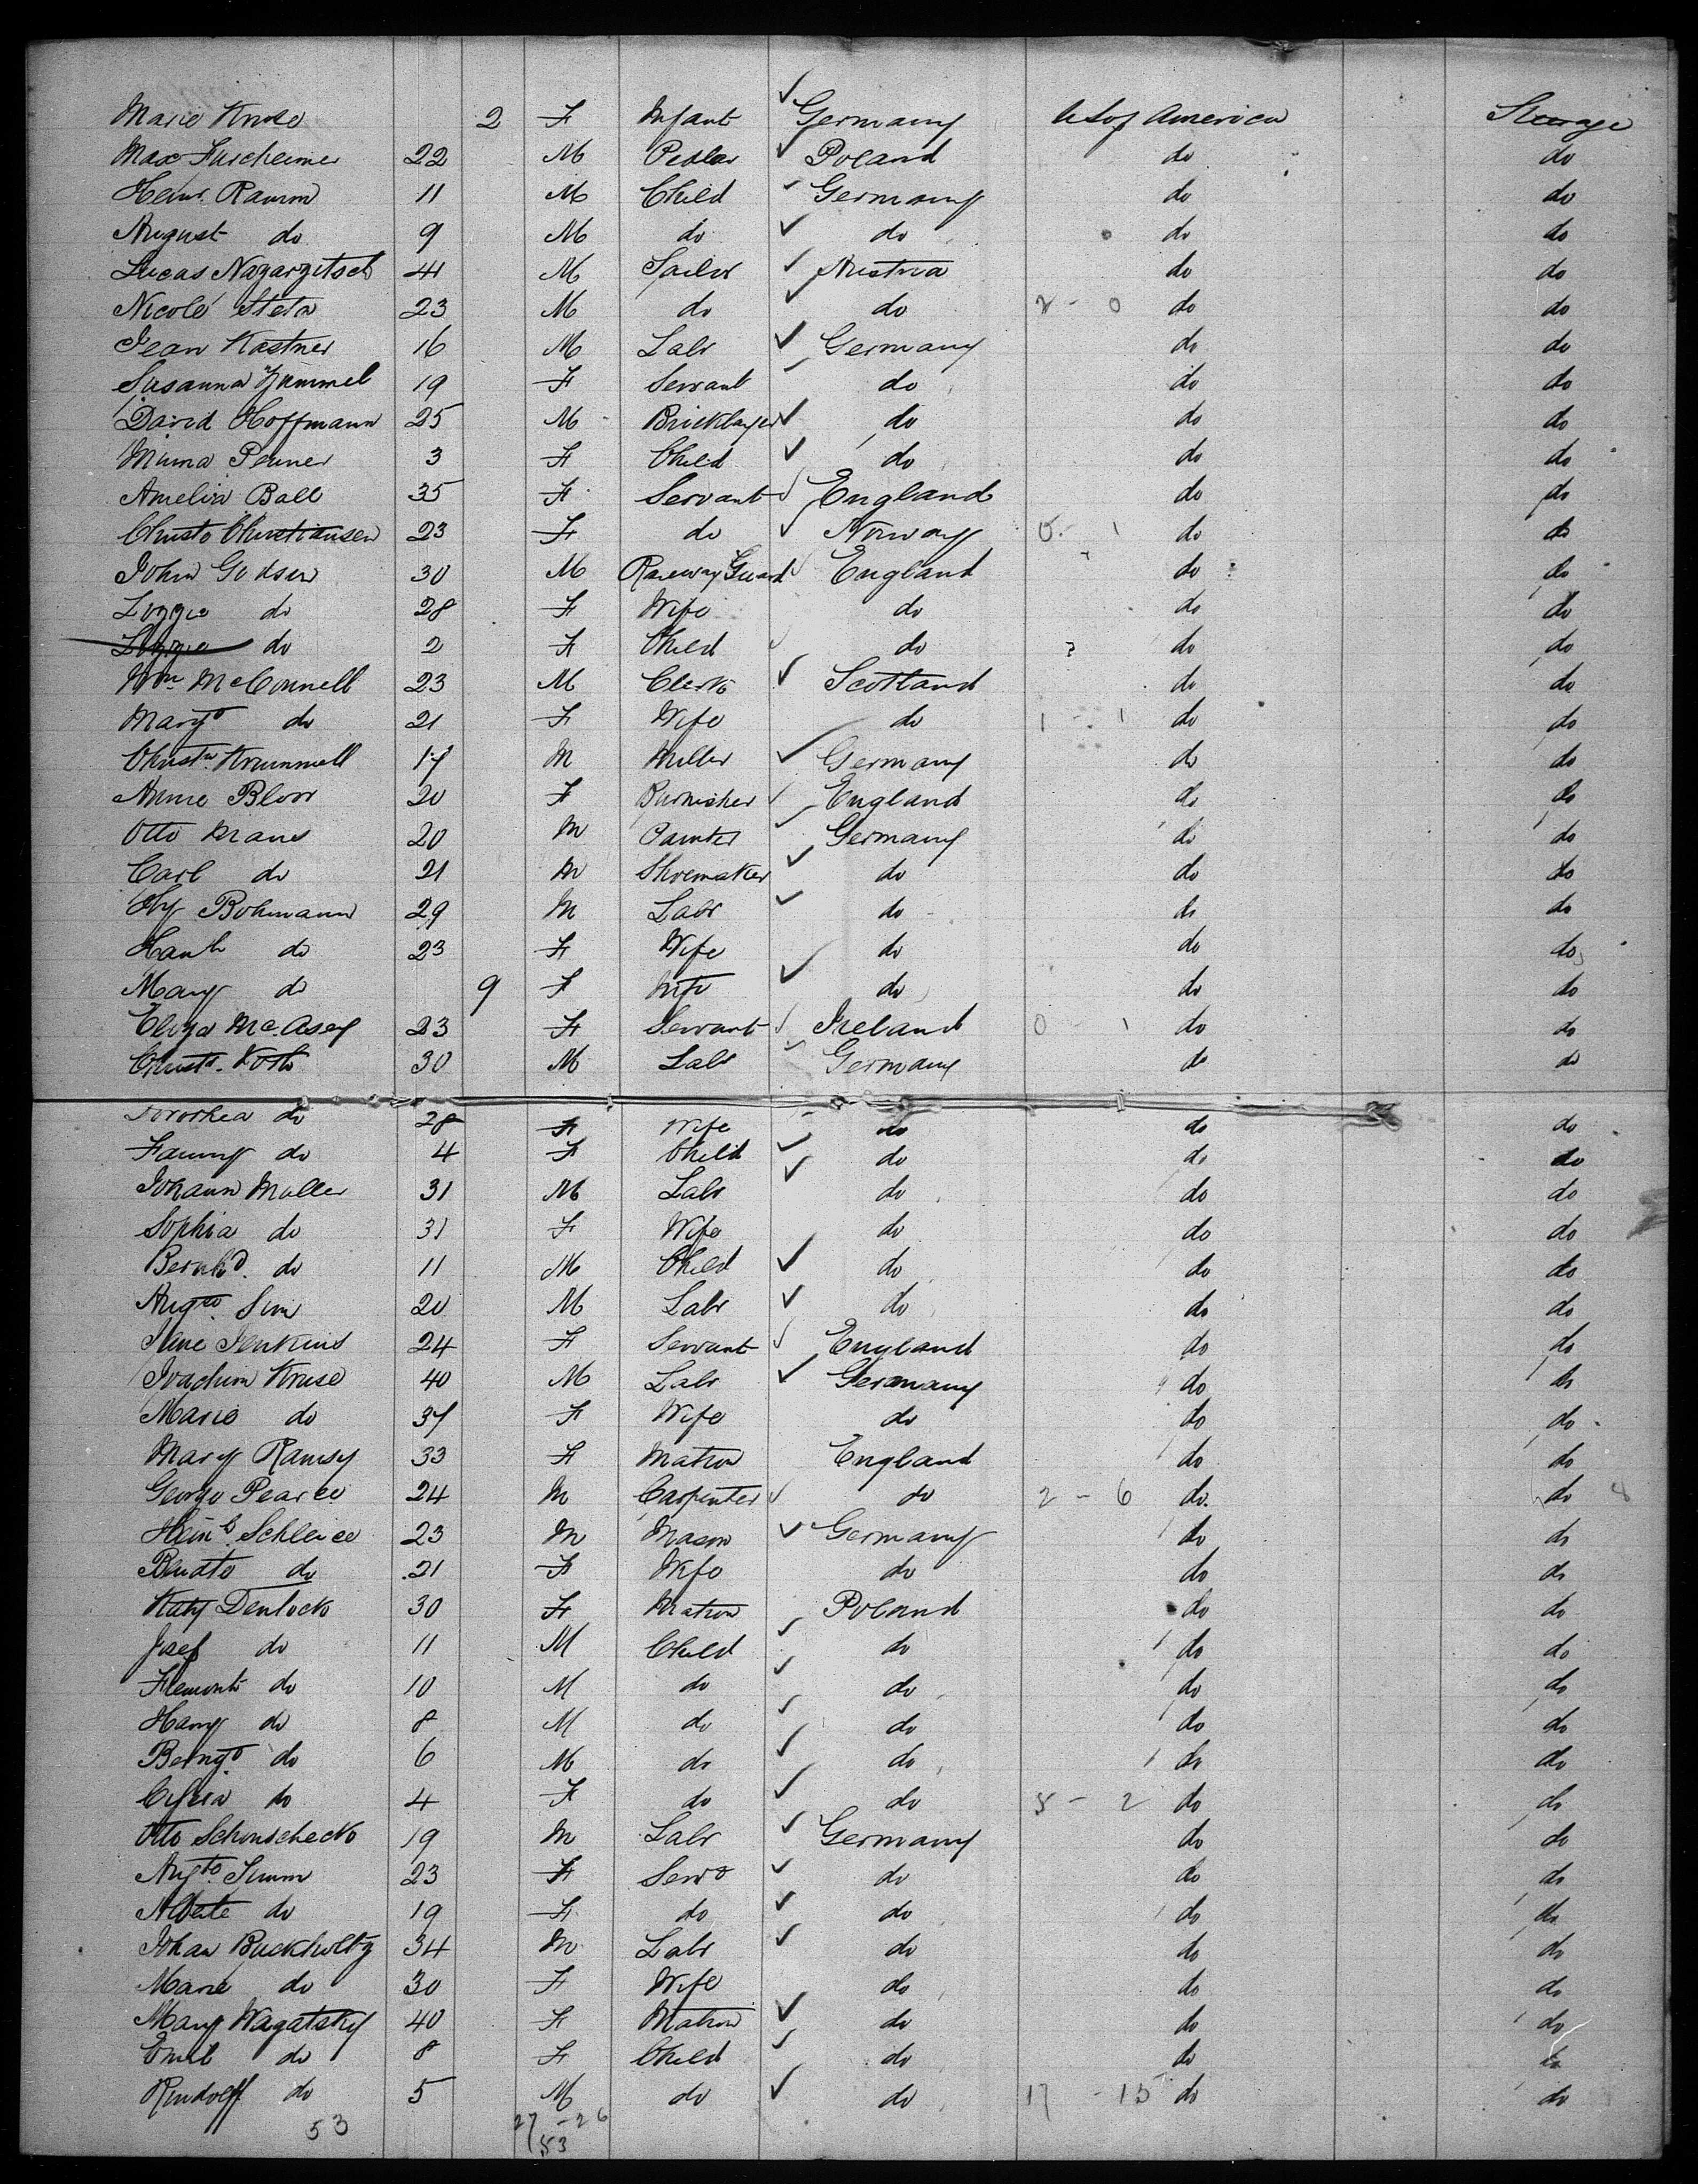 Marie Kruse 2 F Infant ✓ Germany U S of America Steerage
Max 22 M Pedlar ✓ Poland do do
Hein. Ramm 11 M Child ✓ Germany do do
August do 9 M do ✓ do do do
Lucas Nazarzitsch 41 M Sailor ✓ Austria do do
Nicolo Steta 23 M do ✓ do 2 - 0 do do
Jean Kastner 16 M Labr ✓ Germany do do
Susanna Zummel 19 F Servant ✓ do do do
David Hoffmann 25 M Bricklayer ✓ do do do
Minna Penner 3 F Child ✓ do do do
Amelia Ball 35 F Servant ✓ England do do
Christo Christiansen 23 F do ✓ Norway 0 - 1 do do
John Godsen 30 M Railway Guard ✓ England do do
Lizzie do 28 F Wife do do do
Lizzie do 2 F Child ✓ do do do
Wm McConnell 23 M Clerk ✓ Scotland do do
Margt do 21 F Wife do 1 - 1 do do
Christn Krummell 17 M Miller ✓ Germany do do
Annie Blow 20 F Burnisher ✓ England do do
Otto Mans 20 M Painter ✓ Germany do do
Carl do 21 M Shoemaker ✓ do do do
Hy Bohmann 29 M Labr ✓ do do do
Hanh do 23 F Wife do do do
Mary do 9 F Inft ✓ do do do
Eliza McAsey 23 F Servant ✓ Ireland 0 - 1 do do
Christn. Koth 30 M Labr ✓ Germany do do
Dorothea do 28 F Wife do do do
Fanny do 4 F Child ✓ do do do
Johann Muller 31 M Labr ✓ do do do
Sophia do 31 F Wife do do do
Bernhd. do 11 M Child ✓ do do do
Augto. Sim 20 M Labr ✓ do do do
Jane Jenkins 24 F Servant ✓ England do do
Joachim Kruse 40 M Labr ✓ Germany do do
Marie do 37 F Wife do do do
Mary Ramsy 33 F Matron England do do
George Pearce 24 M Carpenter ✓ do 2 - 6 do do
Heinh. Schleice 23 M Mason ✓ Germany do do
do 21 F Wife do do do
Katy Denlock 30 F Matron Poland do do
Josef do 11 M Child ✓ do do do
do 10 M do ✓ do do do
Harry do 8 M do ✓ do do do
do 6 M do ✓ do do do
do 4 F do ✓ do 5 - 2 do do
Otto Schonscheck 19 M Labr ✓ Germany do do
Augto. Simm 23 F Servt ✓ do do do
Alberte do 19 F do ✓ do do do
Johan Buckholtz 34 M Labr ✓ do do do
Marie do 30 F Wife do do do
Mary Wagatsky 40 F Matron ✓ do do do
Emil do 8 F Child ✓ do do do
Rudolff do 5 M do ✓ do 17 - 15 do do
53 27 - 26
53